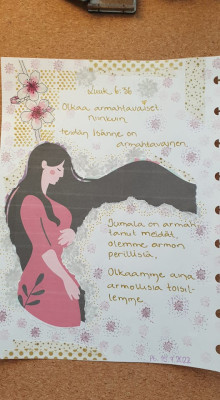 Luuk. 6:36
Olkaa armahtavaiset
niinkuin
teidän Isänne on
armahtavainen
Jumala on armah-
tanut meidät,
olemme armon
perillisiä.
Olkaamme aina
armollisia toisil-
lemme.